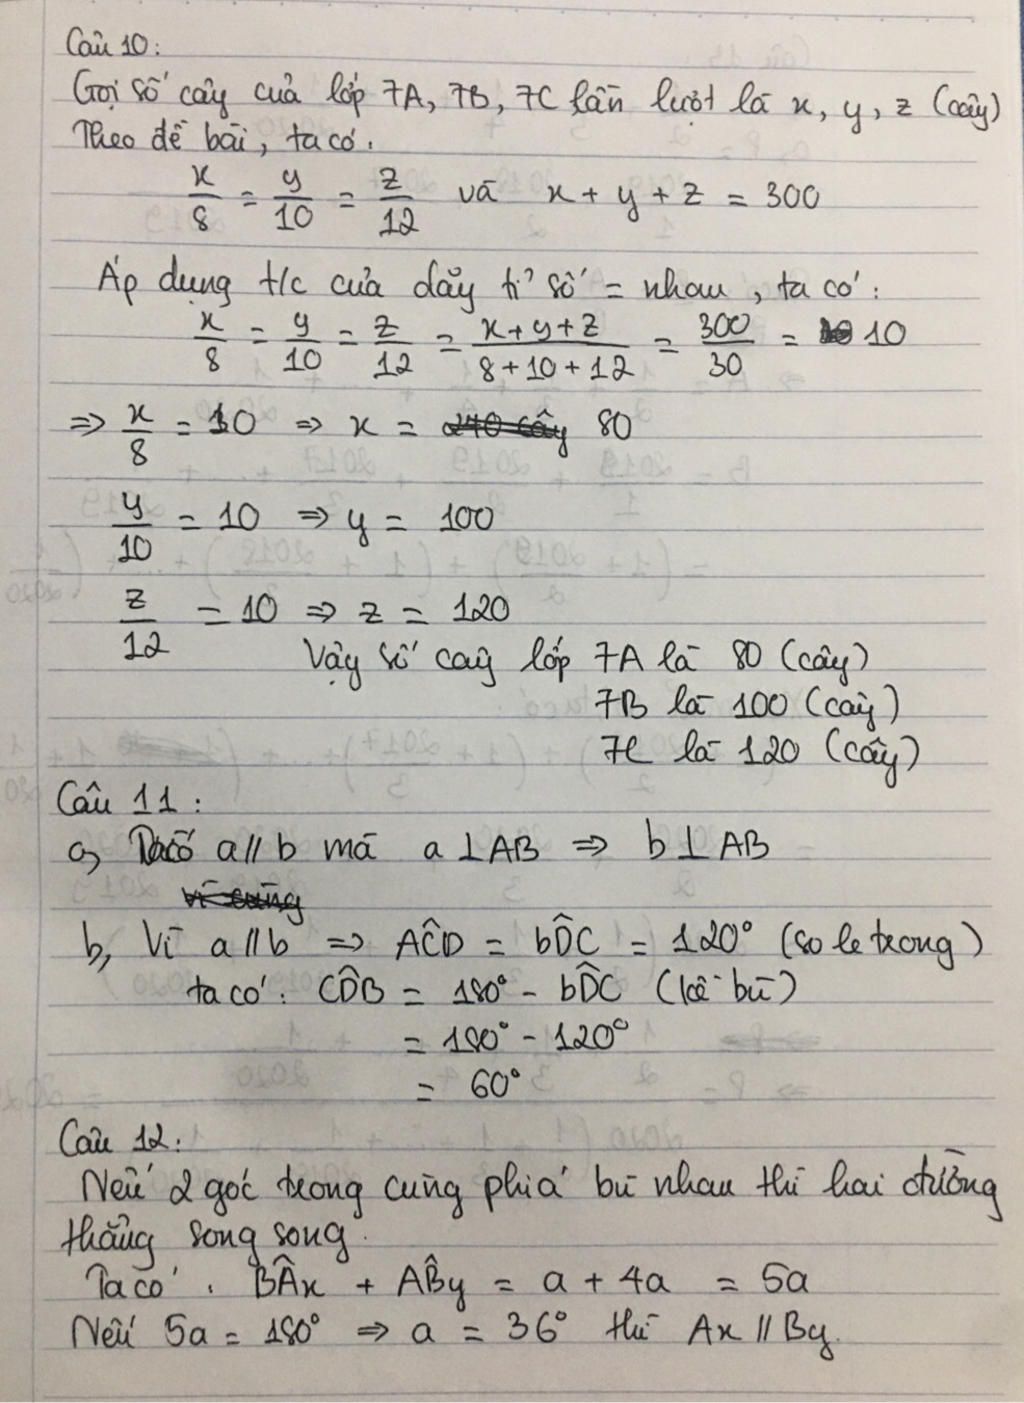 Câu 10:
Gọi số cây của lớp 7A, 7B, 7C lần lượt là x, y, z (cây)
Theo đề bài, ta có:
x/8 = y/10 = z/12 và x + y + z = 300
Áp dụng t/c của dãy tỉ số = nhau, ta có:
x/8 = y/10 = z/12 = (x+y+z)/(8+10+12) = 300/30 = 10
⇒ x/8 = 10 ⇒ x = 80
y/10 = 10 ⇒ y = 100
z/12 = 10 ⇒ z = 120
Vậy số cây lớp 7A là 80 (cây)
7B là 100 (cây)
7C là 120 (cây)
Câu 11:
a, Ta có a // b mà a ⊥ AB ⇒ b ⊥ AB
b, Vì a // b ⇒ AĈD = bD̂C = 120° (so le trong)
ta có: CD̂B = 180° - bD̂C (kề bù)
= 180° - 120°
= 60°
Câu 12:
Nếu 2 góc trong cùng phía bù nhau thì hai đường
thẳng song song.
Ta có: BÂx + AB̂y = a + 4a = 5a
Nếu 5a = 180° ⇒ a = 36° thì Ax // By.